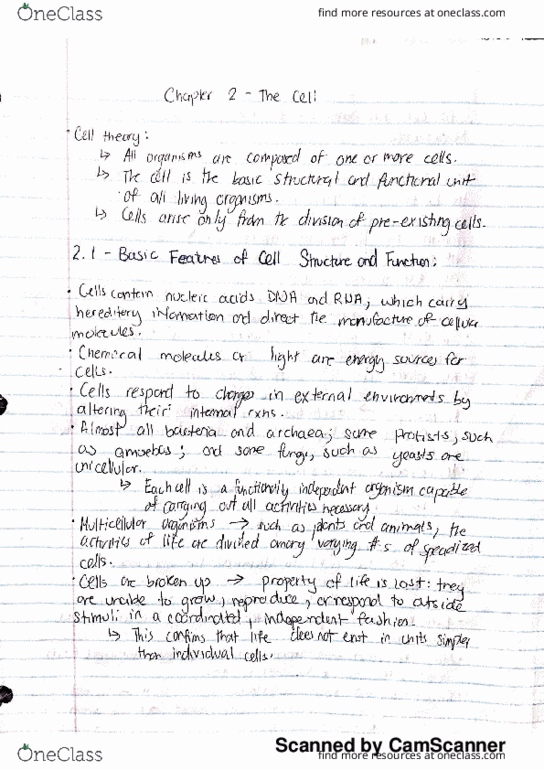 OneClass
find more resources at oneclass.com
Chapter 2 - The Cell
· Cell theory:
↳ All organisms are composed of one or more cells.
↳ The cell is the basic structural and functional unit
of all living organisms.
↳ Cells arise only from the division of pre-existing cells.
2.1 - Basic Features of Cell Structure and Function:
· Cells contain nucleic acids DNA and RNA, which carry
hereditery information and direct the manufacture of cellular
molecules.
· Chemical molecules or light are energy sources for
cells.
· Cells respond to changes in external environments by
altering their internal rxns.
· Almost all bacteria and archaea; some protists, such
as amoebas; and some fungi, such as yeasts are
unicellular.
↳ Each cell is a functionally independent organism capable
of carrying out all activities necessary.
· Multicellular organisms → such as plants and animals, the
activities of life are divided among varying #'s of specialized
cells.
· Cells are broken up → property of life is lost: they
are unable to grow, reproduce, or respond to outside
stimuli in a coordinated, independent fashion.
↳ This confirms that life does not exist in units simpler
than individual cells.
Scanned by CamScanner
OneClass
find more resources at oneclass.com